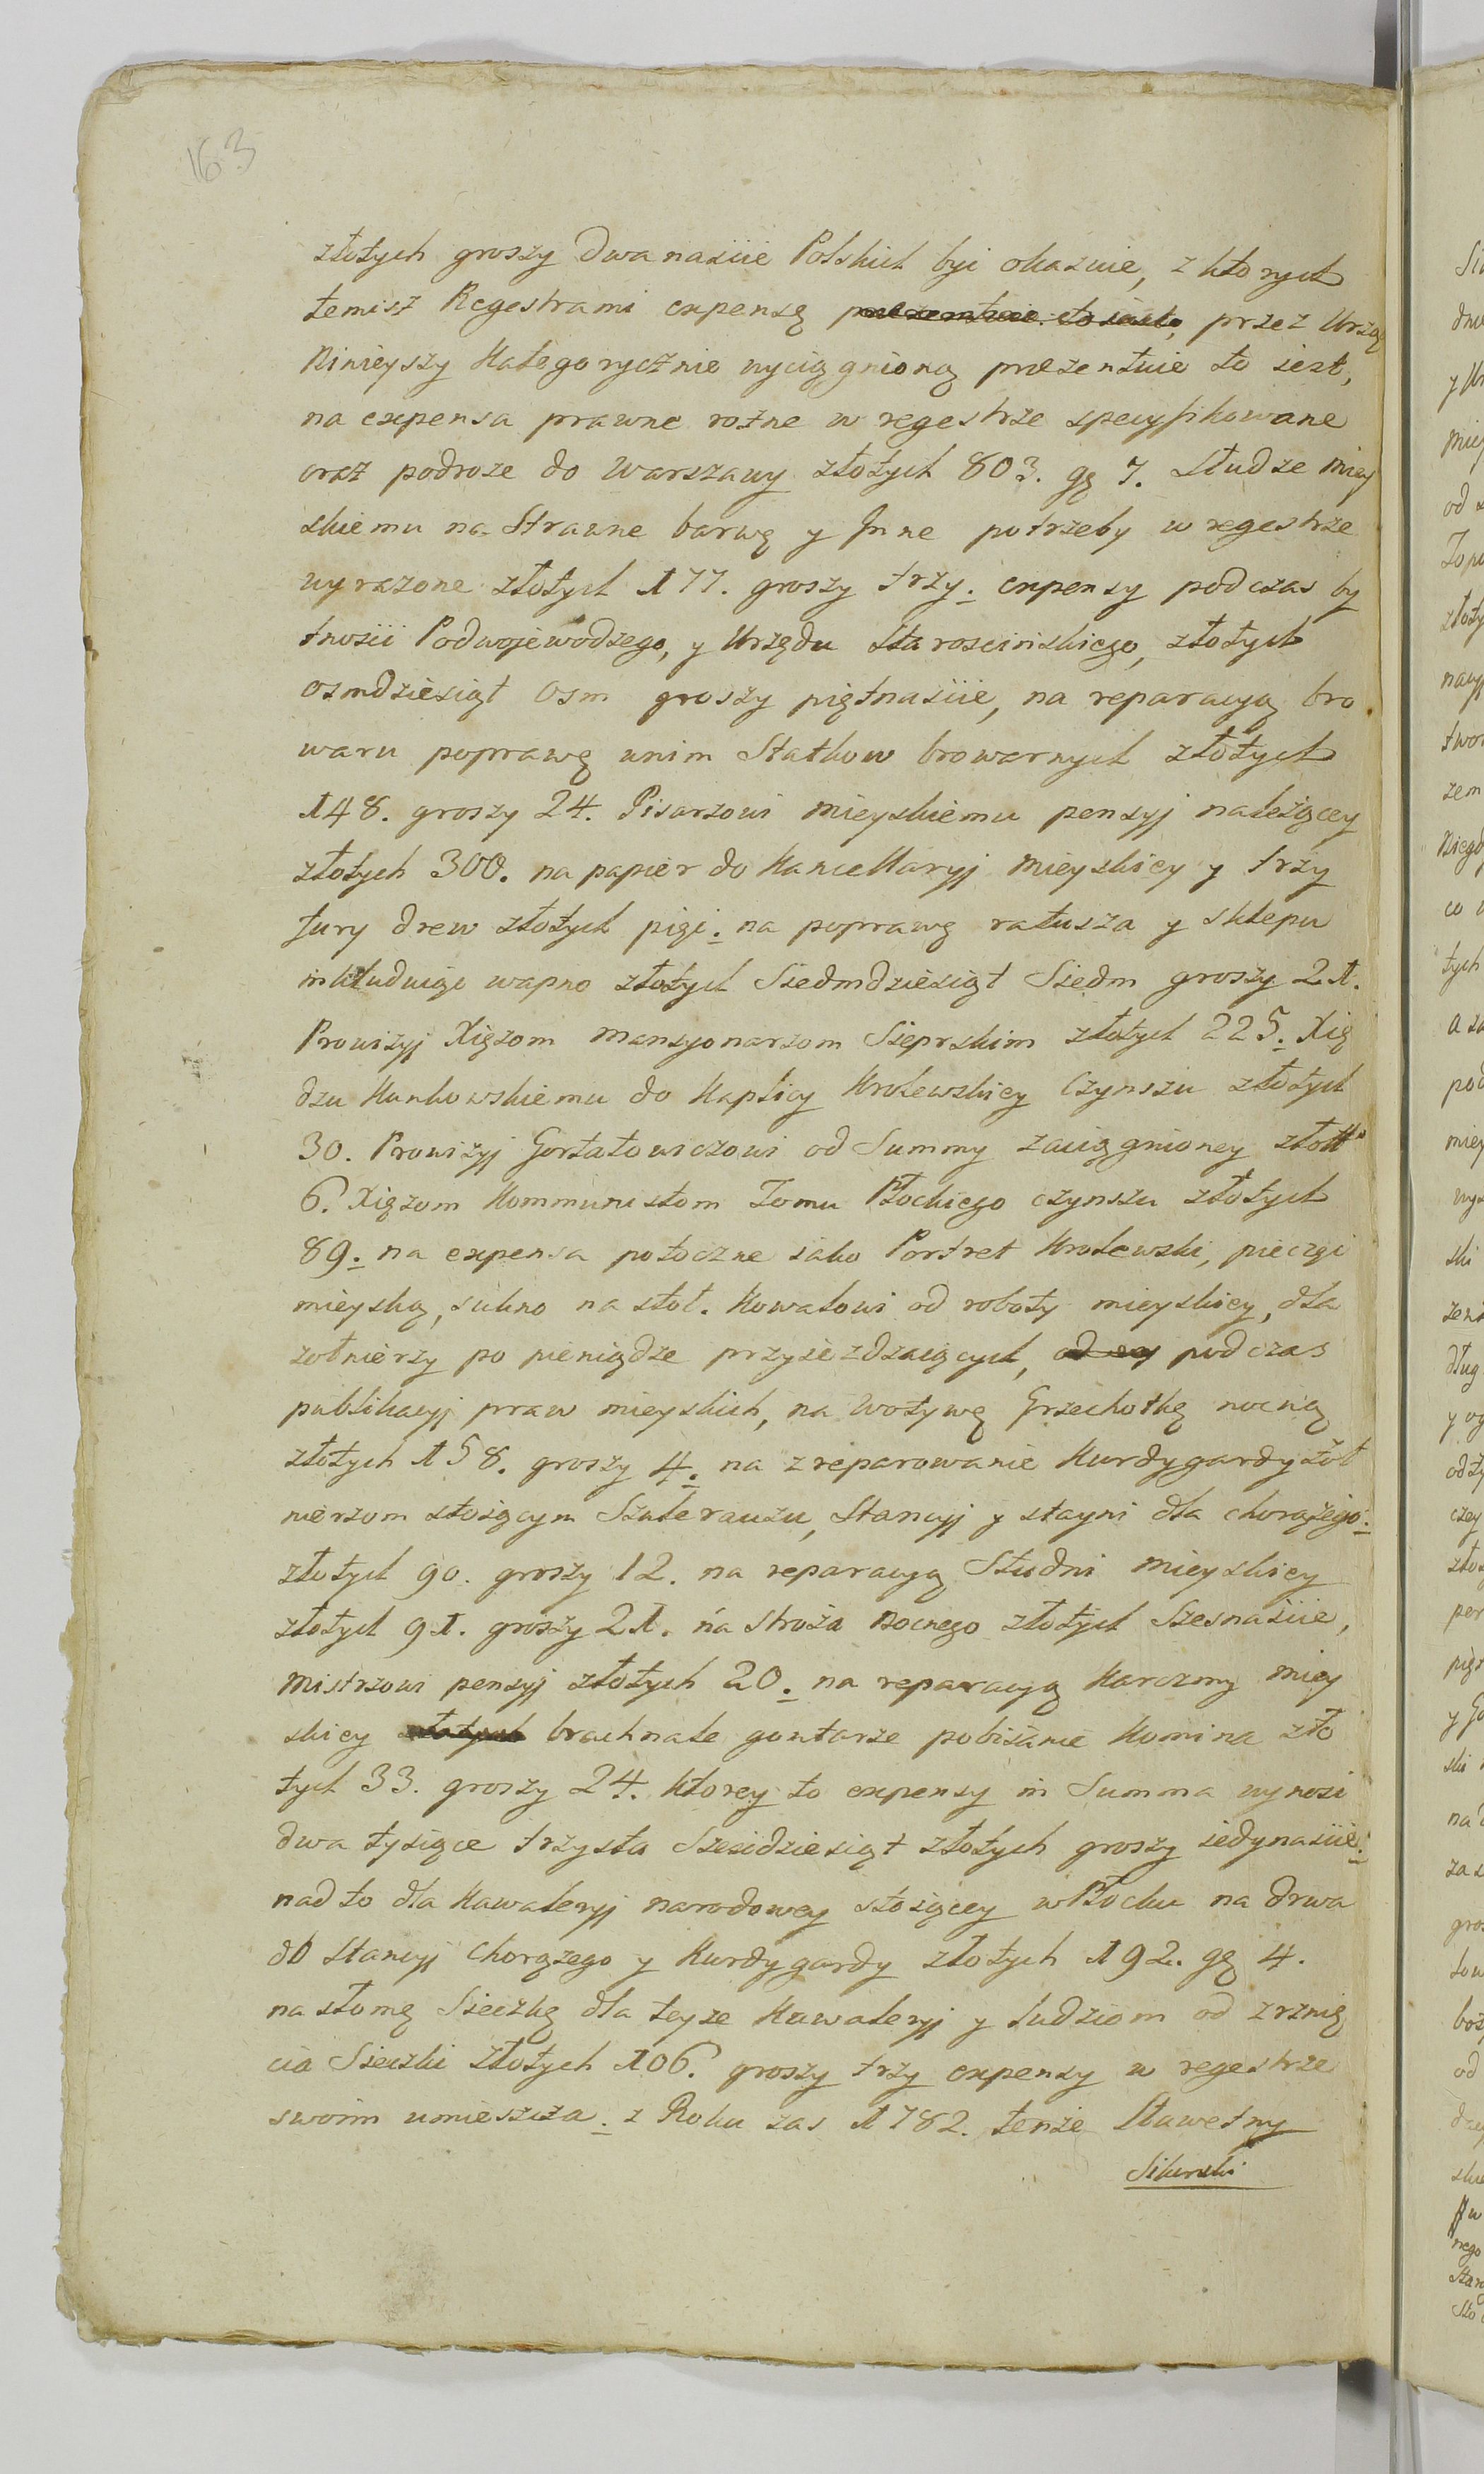 163
złotych groszy Dwanaście Polskich być okazuie, z ktorych
temisz Regestrami expensę prezentuie to iest, przez Urząd
Ninieyszy Kategorycznie wyciągnioną prezentuie to iest,
na expensa prawne rozne w regestrze specyfikowane
oraz podroze do Warszawy złotych 803. gę 7. Słudze Miey
skiemu na Strawne barwę y Jnne potrzeby w regestrze
wyrazone złotych 177. groszy trzy. expensy podczas by
tności Podwojewodzego, y Urzędu Starościńskiego, złotych
osmdziesiąt Osm groszy piętnaście, na reparacyą bro
waru poprawę wnim Statkow browarnych złotych
148. groszy 24. Pisarzowi Mieyskiemu pensyj należącey
złotych 300. na papier do Kancellaryj Mieyskiey y trzy
fury drew złotych pięć. na poprawę ratusza y sklepu
inkluduiąc wapno złotych Siedmdziesiąt Siedm groszy 21.
Prowizyj Xięzom Mansyonarzom Sieprskim złotych 225. Xię
dzu Kunkowskiemu do Kaplicy Krolewskiey Czynszu złotych
30. Prowizyj Gortatowiczowi od Summy zaciągnioney złott
6. Xięzom Kommunistom Tomu Płockiego czynszu złotych
89. na expensa potoczne iako Portret Krolewski, pieczęć
mieyską, sukno na stoł. Kowalowi od roboty mieyskiey, dla
zołnierzy po pieniądze przyiezdzaiących, podczas
publikacyj praw mieyskich, na Wotywę Grzechotkę nocną
złotych 158. groszy 4. na zreparowanie Kurdygardy żoł
nierzom stoiącym Szulerauzu, Stancyj y stayni dla chorążego.
złotych 90. groszy 12. na reparacyą Studni Mieyskiey
złotych 91. groszy 21. na Stroża Nocnego złotych Szesnaście,
Mistrzowi pensyj złotych 20. na reparacyą Karczmy Miey
skiey złotych brachnale gontarze pobiianie Komina zło
tych 33. groszy 24. Ktorey to expensy in Summa wynosi
dwa tysiące trzysta Sześćdziesiąt złotych groszy iedynaście.
nad to dla Kawaleryj narodowey stoiącey w Płocku na drwa
do Stancyj Chorązego y Kurdygardy złotych 192. gę 4.
na słomę Sieczkę dla teyze Kawaleryj y ludziom od zrznię
cia Sieczki złotych 106. groszy trzy expensy w regestrze
swoim umieszcza. z Roku zas 1782. tenże Sławetny
Sikorski